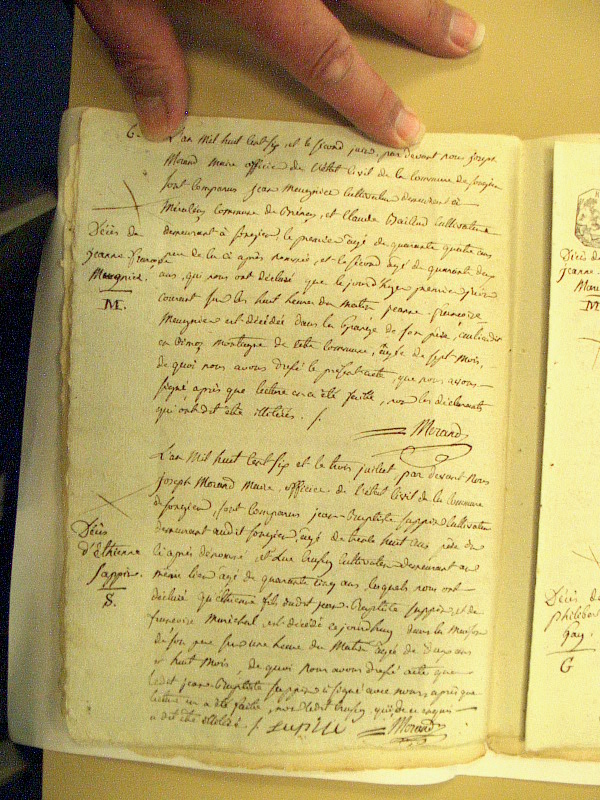 6
L'an mil huit cent six et le second juin, par devant nous joseph
Morand maire officier de l'état civil de la commune de songieu
sont comparus jean Meugnier cultivateur demeurant à
commune de Brénaz, et Claude Baillod cultivateur
demeurant à songieu le premier agé de quarante quatre ans
père de la ci après nommée, et le second agé de quarante deux
ans, qui nous ont déclaré que le jourd'hyer premier juin
courant sur les huit heures du matin jeanne françoise
Meugnier est décédée dans la Grange de son père,
montagne de cette commune, agée de sept mois,
de quoi nous avons dressé le présent acte, que nous avons
signé, après que lecture en a été faite, non les déclarants
qui ont dit etre illitérés. /.
Morand
Décès de
jeanne françoise
Meugnier.
M.
L'an mil huit cent six et le trois juillet par devant nous
joseph Morand maire officier de l'état civil de la commune
de songieu, sont comparus jean-Baptiste suppin cultivateur
demeurant audit songieu, agé de trente huit ans père du
ci après dénommé, et Luc cultivateur demeurant au
même lieu agé de quarante cinq ans, lesquels nous ont
déclaré qu'ethienne fils dudit jean-Baptiste suppin, et de
françoise Maréchal, est décédé cejourd'huy dans la maison
de son père sur une heure du matin agé de deux ans
et huit mois, de quoi nous avons dressé acte que
ledit jean-Baptiste suppin à signé avec nous, après que
lecture en a été faite, non ledit qui de ce requis
à dit etre illitéré. /.
Morand
Décès
d'Ethienne
suppin.
S.
Décès de
jeanne
M
Décès de
philiber
gay.
G